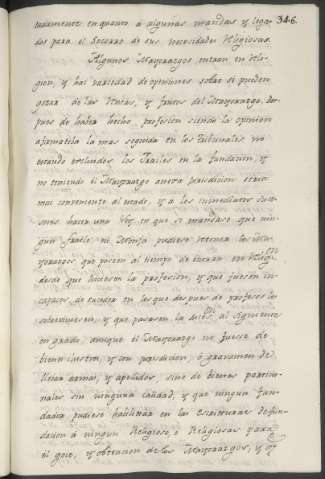 346.
tivamente en quanto a algunas mandas y lega-
dos para el Socorro de sus necesidades Religiosas.
Algunos Mayorazgos entran en Reli-
gion, y hai variedad de opiniones sobre si pueden
gozar de las Rentas, y frutos del Mayorazgo, des-
pues de haver hecho profesion siendo la opinion
afirmativa la mas seguida en los Tribunales no
estando excluidos los Frailes en la fundacion, y
no teniendo el Mayorazgo anexa jurisdicion seria
mui conveniente al estado, y a los inmediatos suce-
sores hacer una Ley en que se mandase que nin-
gun fraile ni Monja pudiese retener los Mayo-
razgos que posean al tiempo de entrar en Religion
desde que hiciesen la profesion, y que fuesen in-
capaces de suceder en los que despues de profesos les
sobreviniesen, y que pasasen la subcesion al siguiente
en grado, aunque el Mayorazgo no fuese de
bienes ilustres, y con jurisdicion, ó gravamen de
llevar armas, y apellidos, sino de bienes patrimo-
niales sin ninguna calidad, y que ningun fun-
dador pudiese habilitar en las escrituras de fun-
dacion á ningun Religioso, ó Religiosas para
el goce, y obtencion de los Mayorazgos, y